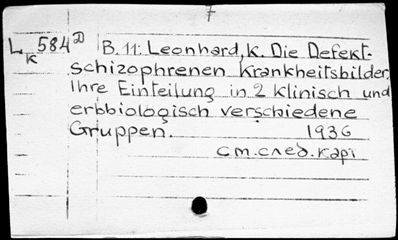 L 584 D B. 11: Leonhard, K. Die Defekt-
K schizophrenen Krankheitsbilder.
Ihre Einteilung in 2 klinisch und
erbbiologisch verschiedene
Gruppen. 1936
см. след. карт